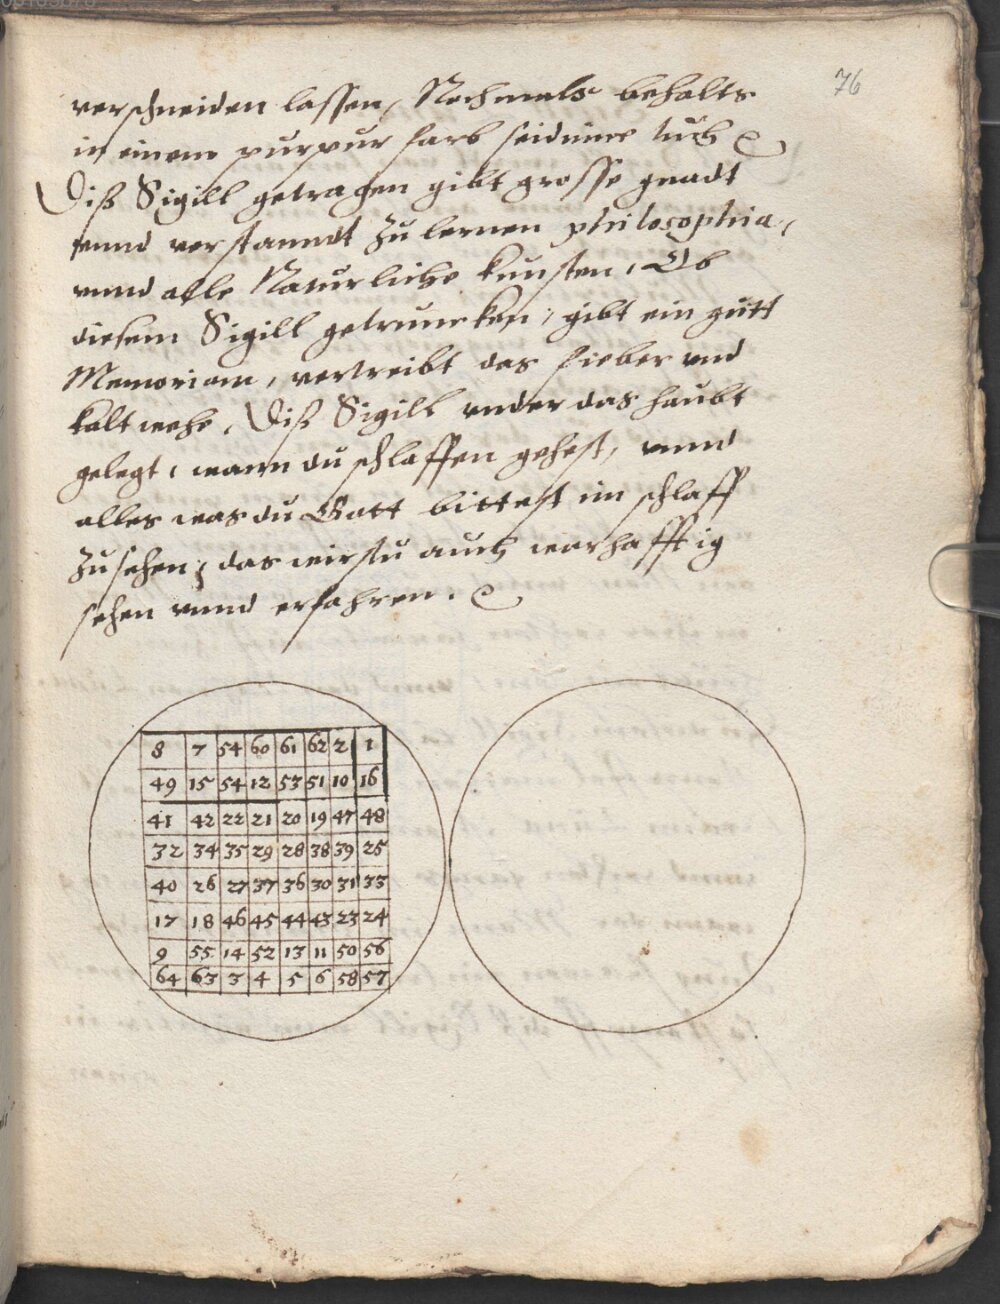 76
verschneiden lassen, Nochmals behalts
in einem purpur farb seidinne tuch
Diß Sigill getragen gibt grosse gnadt
vnnd verstanndt zu lernen philosophia,
vnnd alle Naturliche kunsten, Ob
diesem Sigill getruncken, gibt ein gutt
Memoriam, vertreibt das fieber vnd
kaltwehe, Diß Sigill vnder das haubt
gelegt, wann du schlaffen gehest, vnnd
alles was du Gott bittest im schlaff
zusehen, das wirstu auch warhafftig
sehen vnnd erfahren.
8 7 54 60 61 62 2 1
49 15 54 12 53 51 10 16
41 42 22 21 20 19 47 48
32 34 35 29 28 38 39 25
40 26 27 37 36 30 31 33
17 18 46 45 44 43 23 24
9 55 14 52 13 11 50 56
64 63 3 4 5 6 58 57